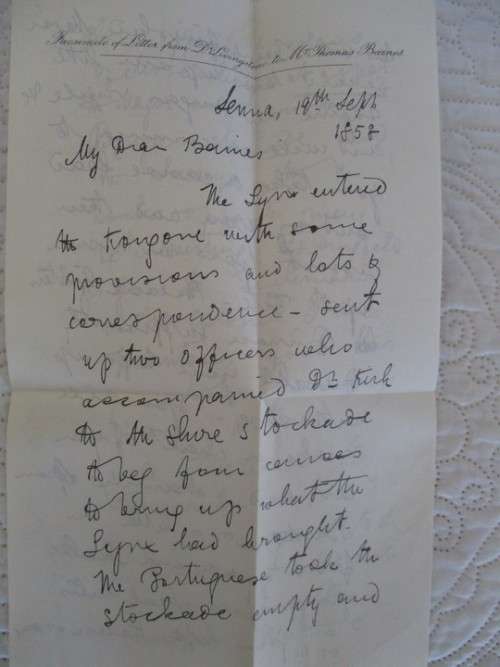 Facsimile of Letter from Dr Livingstone to Mr Thomas Baines
Senna, 19th Sept
1858
My Dear Baines
The Lynx entered
the Kongone with some
provisions and lots of
correspondence - sent
up two officers who
accompanied Dr Kirk
to the Shire stockade
to beg four canoes
to bring up what the
Lynx had brought.
The Portuguese took the
stockade empty and